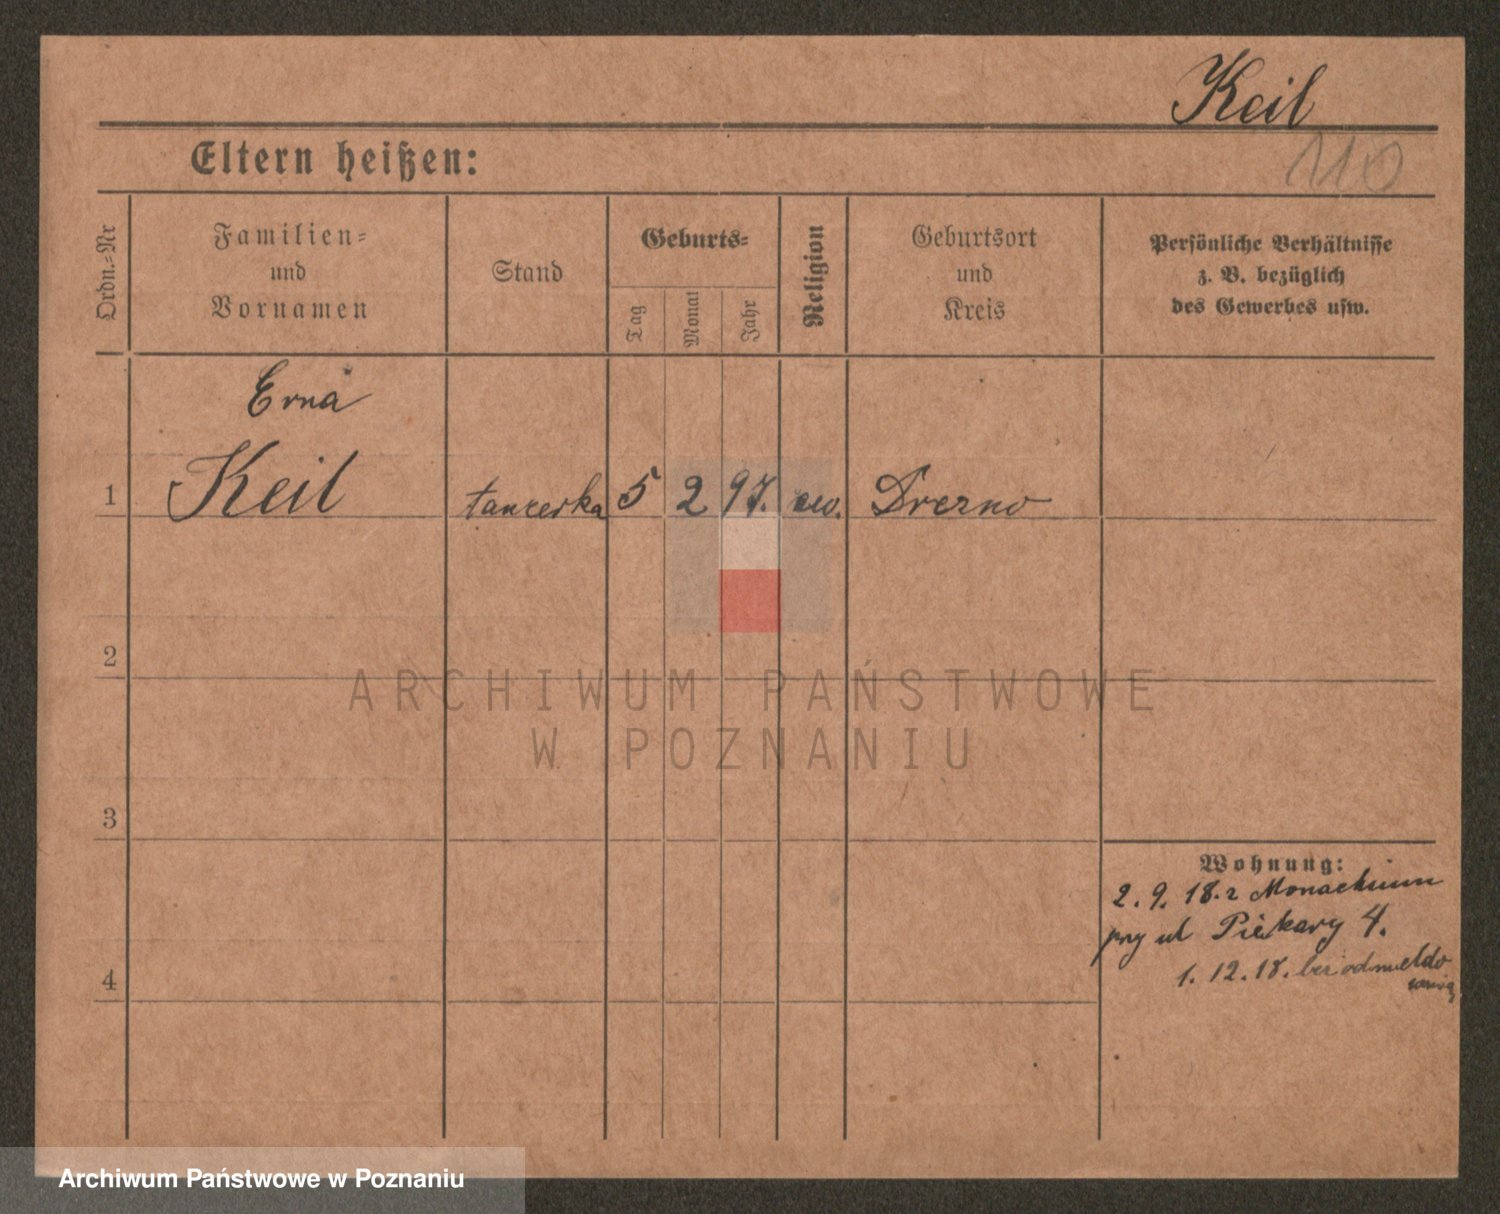 Keil
110
Eltern heißen:
Ordn.=Nr
Familien=
und
Vornamen
Stand
Geburts=
Tag
Monat
Jahr
Religion
Geburtsort
und
Kreis
Persönliche Verhältnisse
z. B. bezüglich
des Gewerbes usw.
Erna
1 Keil tancerka 5 2 97. ew. Drezno
2
ARCHIWUM PAŃSTWOWE
W POZNANIU
3
Wohnung:
2. 9. 18. z Monachium
przy ul Piekary 4.
1. 12. 18. bez odmeldo
wania
4
Archiwum Państwowe w Poznaniu